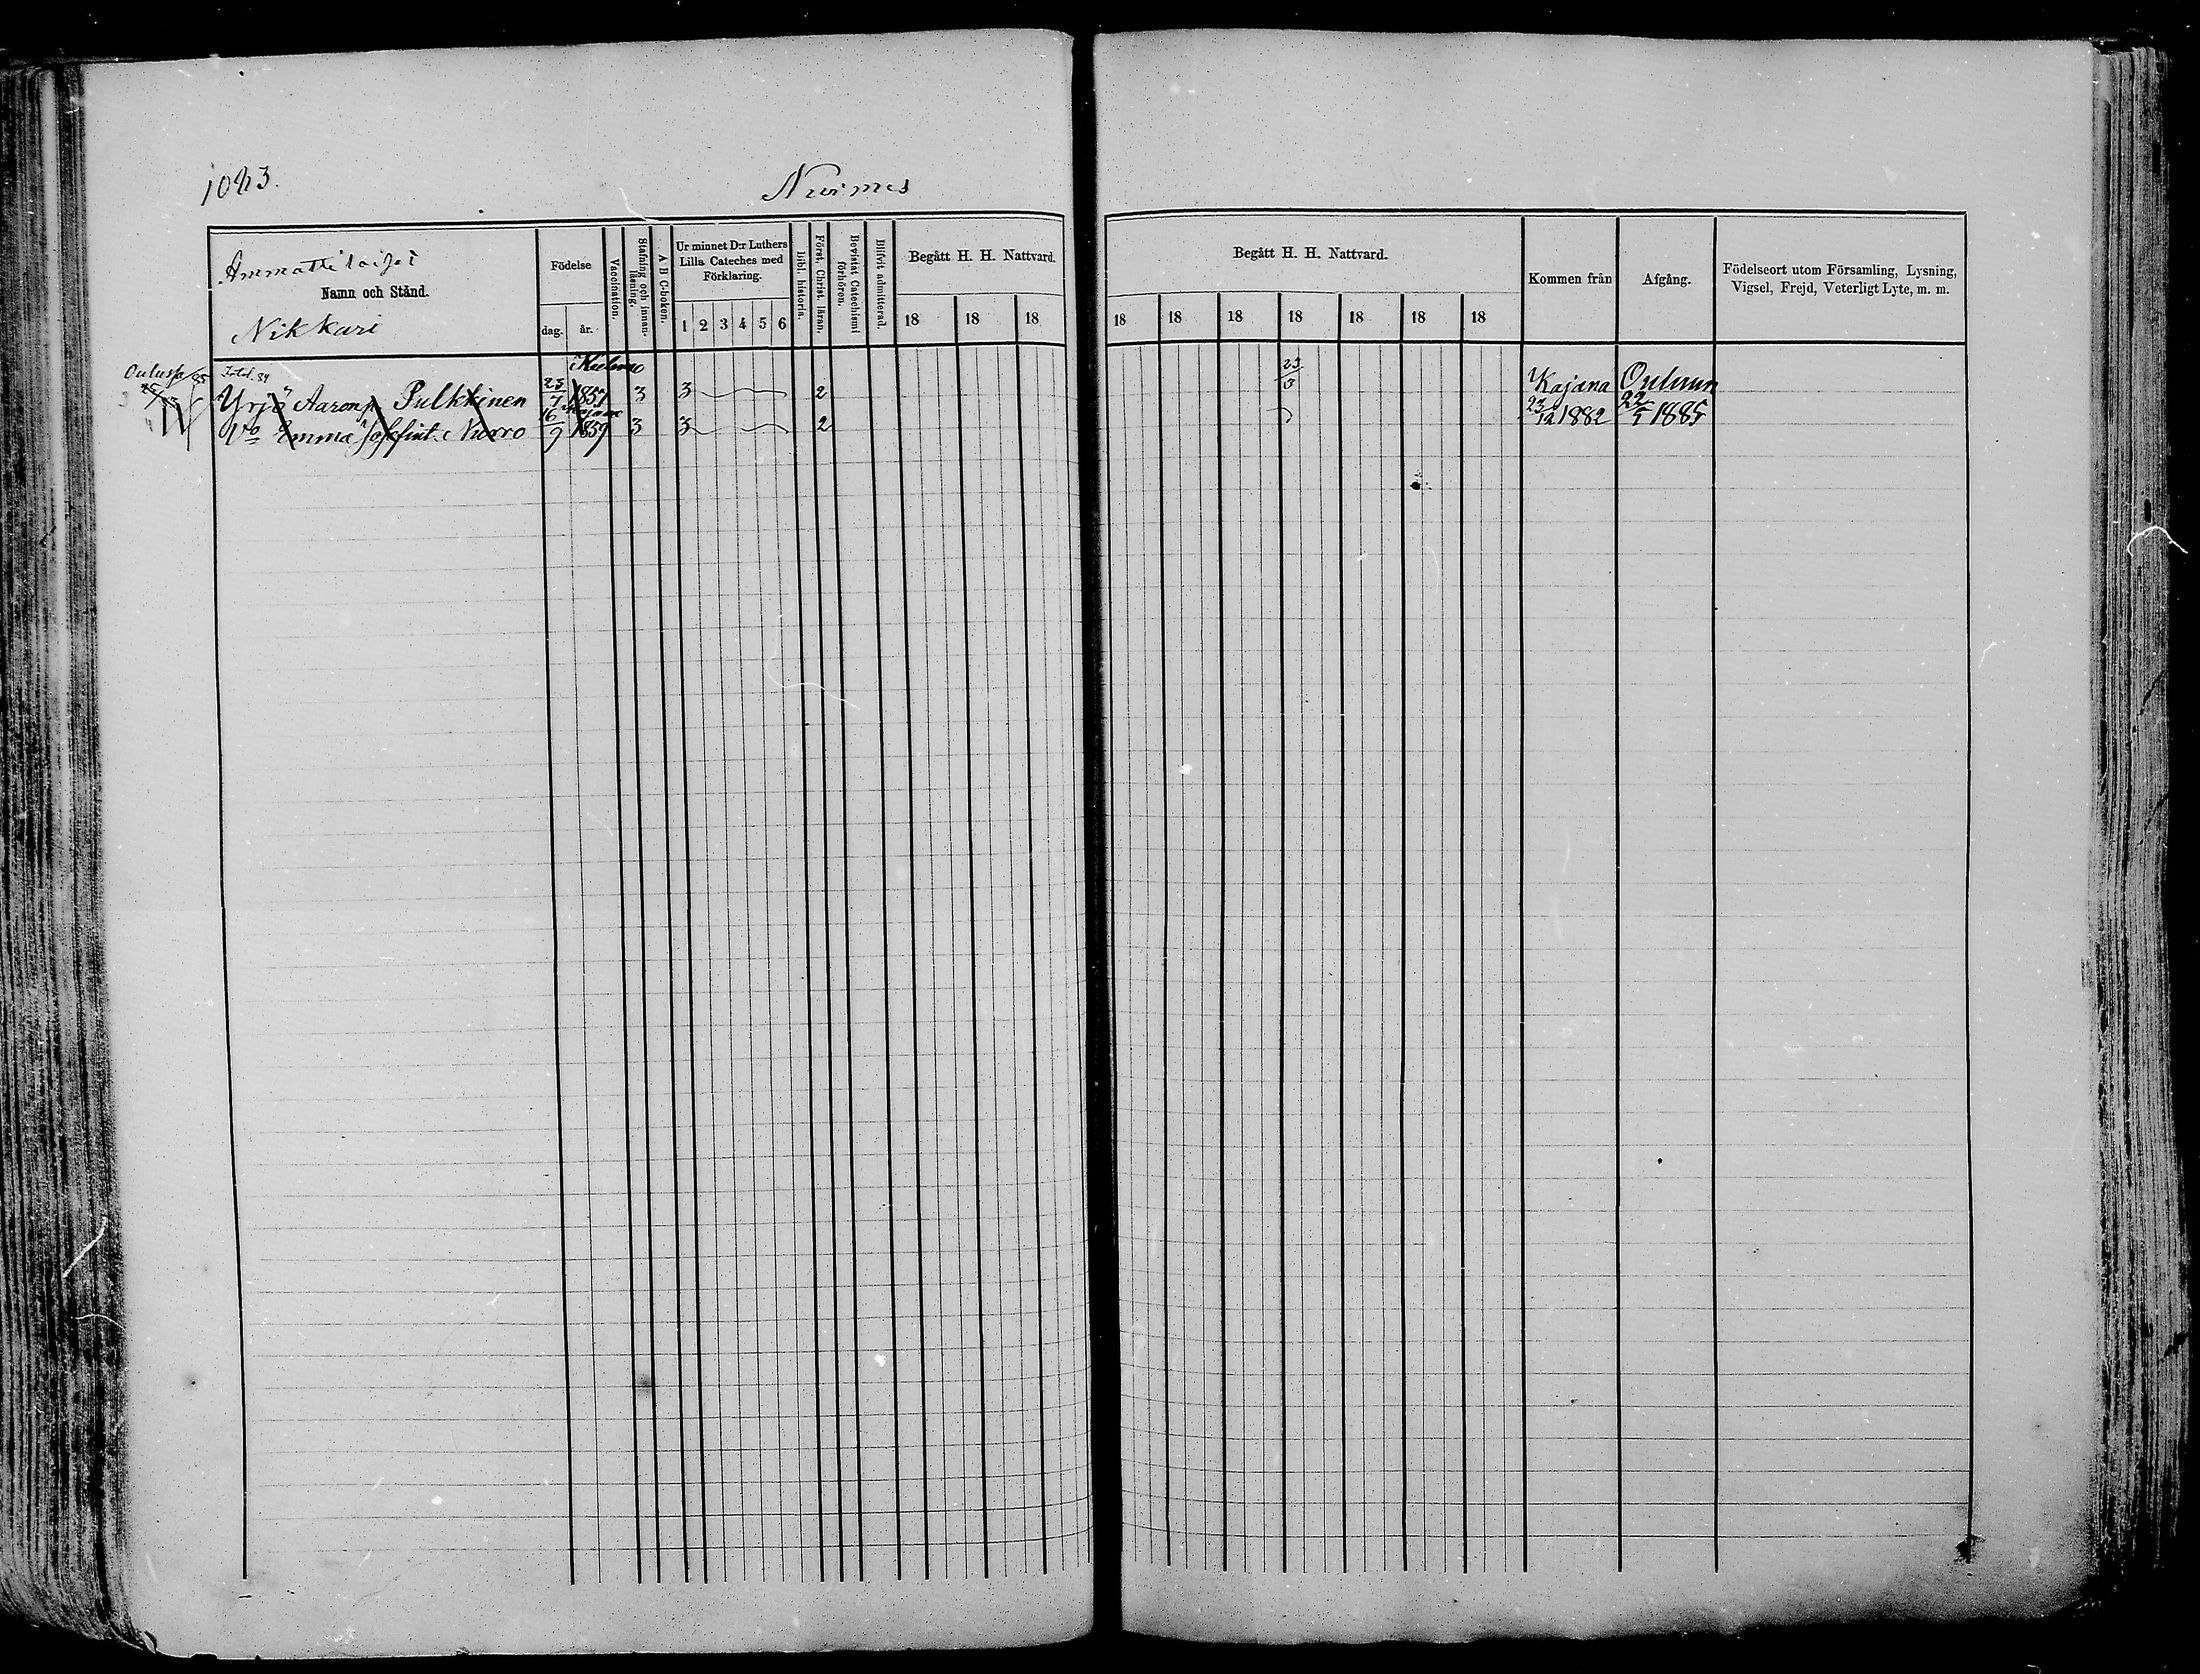 1023.
Nurmes
Ammattilaiset
Namn och Stånd.
Nikkari
Födelse
dag.
år.
Vaccination.
Stafning och innan-läsning.
A B C-boken.
Ur minnet D:r Luthers
Lilla Cateches med
Förklaring.
1 2 3 4 5 6
Bibl. historia.
Först. Christ. läran.
Bevistat Catechismi förhören.
Blifvit admitterad.
Begått H. H. Nattvard.
18 18 18
Begått H. H. Nattvard.
18 18 18 18 18 18 18
Kommen från
Afgång.
Födelseort utom Församling, Lysning,
Vigsel, Frejd, Veterligt Lyte, m. m.
Oulussa 85
Kuhmo
Yrjö Aaronp. Pulkkinen 23/7 1857 3 3 2 Kajana Ouluun
Kajana
Vo Emma Josefint. Nurro 16/9 1859 3 3 2 23/12 1882 22/5 1885